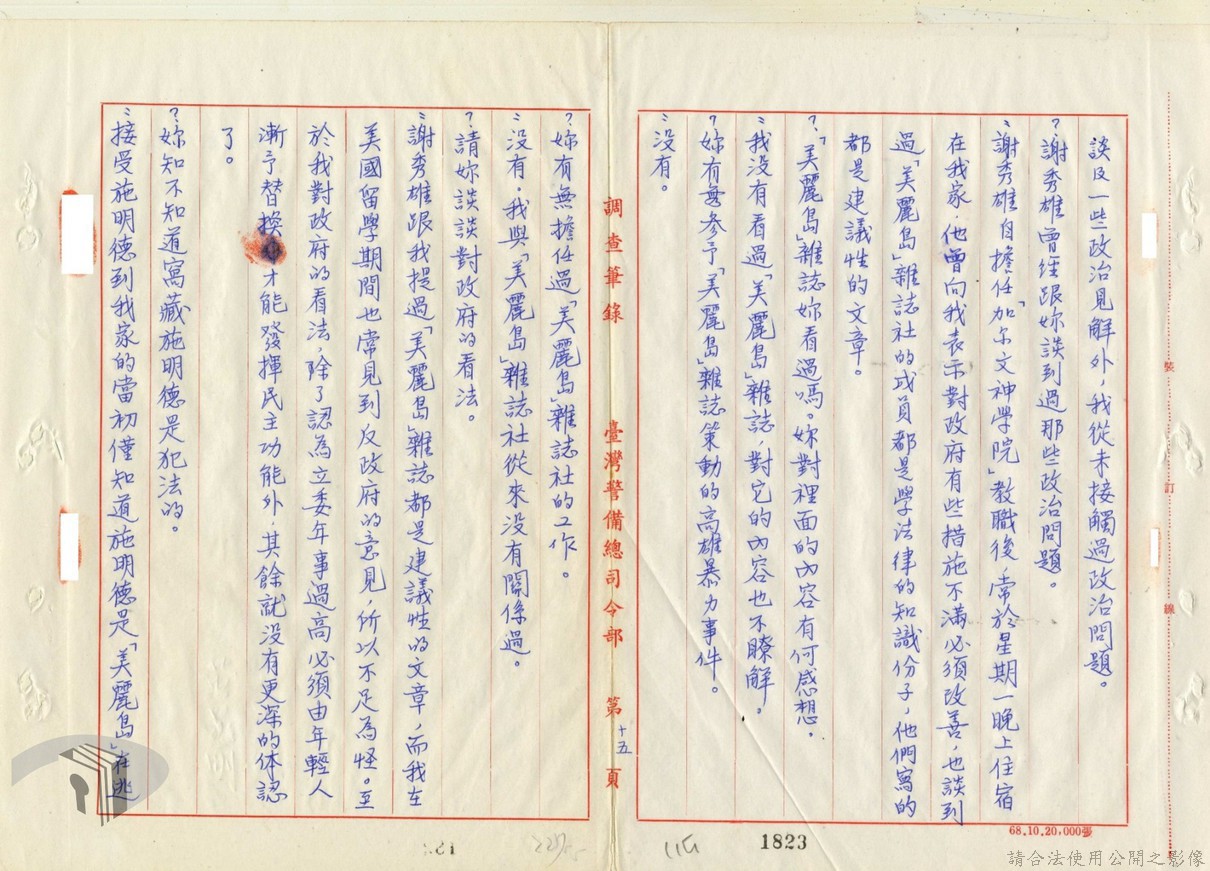 談及一些政治見解外，我從未接觸過政治問題。
？謝秀雄曾經跟妳談到過那些政治問題。
：謝秀雄自擔任「加尔文神學院」教職後，常於星期一晚上住宿
在我家，他曾向我表示對政府有些措施不滿必須改善，也談到
過「美麗島」雜誌社的成員都是學法律的知識份子，他們寫的
都是建議性的文章。
？「美麗島」雜誌妳看過嗎。妳對裡面的內容有何感想，
：我没有看過「美麗島」雜誌，對它的內容也不瞭解。
？妳有無参予「美麗島」雜誌策動的高雄暴力事件。
：没有。
調查筆錄 臺灣警備總司令部 第十五頁
？妳有無擔任過「美麗島」雜誌社的工作。
：没有，我與「美麗島」雜誌社從來没有關係過。
？請妳談談對政府的看法。
：謝秀雄跟我提過「美麗島」雜誌都是建議性的文章，而我在
美國留學期間也常見到反政府的意見，所以不足為怪。至
於我對政府的看法，除了認為立委年事過高必須由年輕人
漸予替換，才能發揮民主功能外，其餘就没有更深的体認
了。
？妳知不知道窩藏施明德是犯法的。
：接受施明德到我家的當初僅知道施明德是「美麗島」在逃
裝 訂 線
68.10.20,000張
1823
請合法使用公開之影像